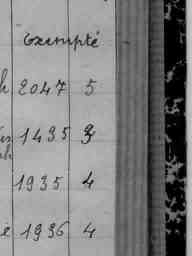 exempté
2047 5
1435 3
1935 4
1936 4